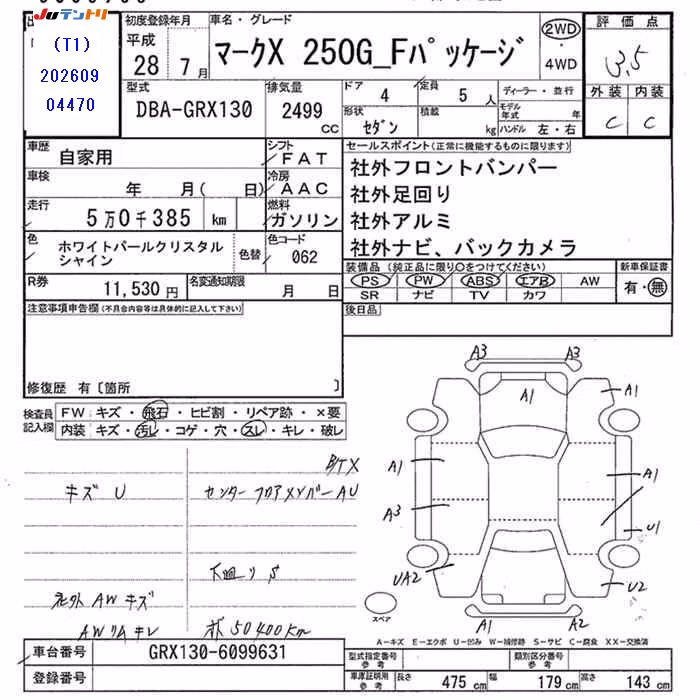 Juテントリ
(T1)
202609
04470
初度登録年月
平成
28 7月
車名・グレード
マークX 250G_Fパッケージ
2WD
・
4WD
評価点
3.5
外装 内装
C C
型式
DBA-GRX130
排気量
2499
CC
ドア 4
定員 5 人
形状 セダン
積載 kg
ディーラー・並行
モデル年式 年
ハンドル 左・右
車歴 自家用
シフト FAT
車検 年 月( 日)
冷房 AAC
走行 5万0千385 km
燃料 ガソリン
色 ホワイトパールクリスタル
シャイン
色替
色コード 062
R券 11,530円
名変通知期限 月 日
セールスポイント(正常に機能するものに限ります)
社外フロントバンパー
社外足回り
社外アルミ
社外ナビ、バックカメラ
装備品(純正品に限り○をつけてください)
PS PW ABS エアB AW
SR ナビ TV カワ
新車保証書
有・無
後日品
注意事項申告欄(不具合内容等は具体的に記入して下さい)
修復歴 有〔箇所 〕
検査員
記入欄
FW キズ・飛石・ヒビ割・リペア跡・×要
内装 キズ・汚レ・コゲ・穴・スレ・キレ・破レ
キズ U
センターフロアメンバー AU
下回り S
社外AWキズ
AWリムキレ
50400km
A3 A3
A1
A1
A1
A1
A3
U1
UA2
U2
A1
A2
スペア
A-キズ E-エクボ U-凹み W-補修跡 S-サビ C-腐食 XX-交換済
車台番号 GRX130-6099631
登録番号
型式指定番号
参考
類別区分番号
参考
車庫証明用
参考
長さ 475 cm
幅 179 cm
高さ 143 cm